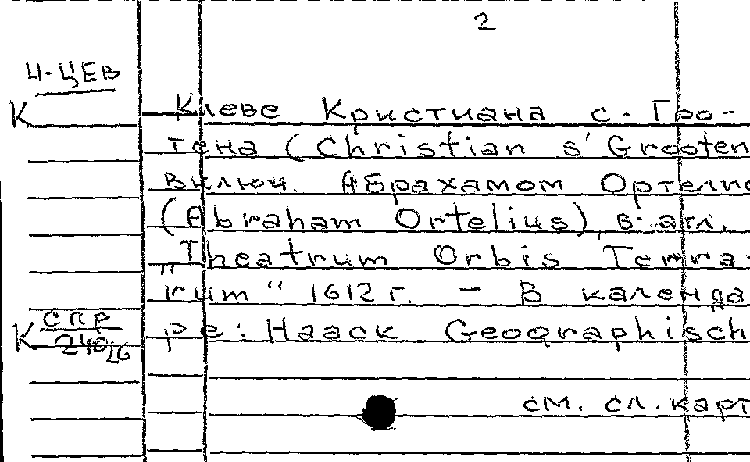 2
Ц-ЦЕВ
К
Клеве Кристиана с. Гро-
тена (Christian s' Grooten
включ. Абрахамом Ортелис
(Abraham Ortelius) в: атл.
"Theatrum Orbis Terra-
rum" 1612 г. – В календа
ре: Haack Geographisch
К СПР
240
26
см. сл. карт